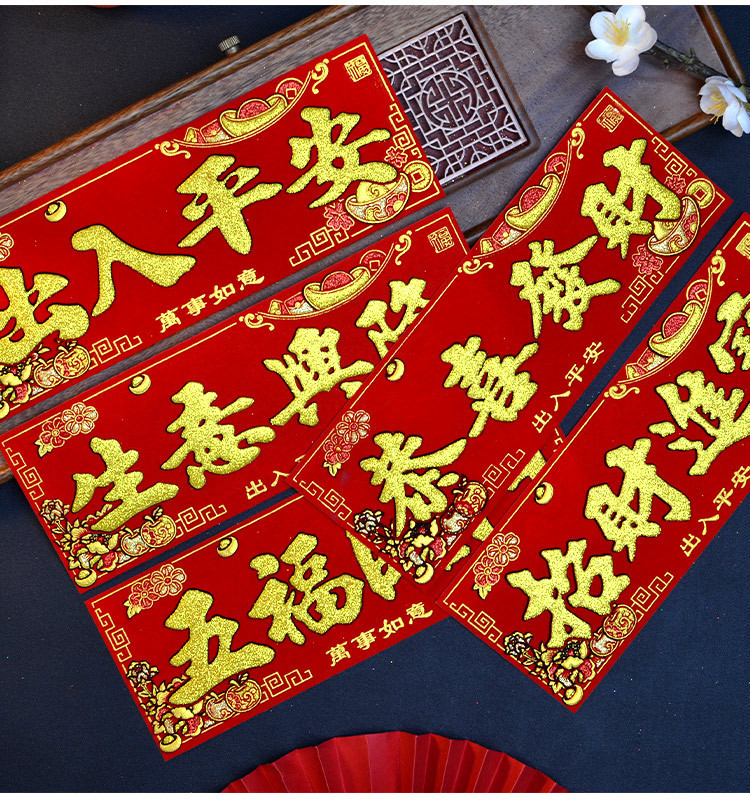 出入平安
萬事如意
生意興
出入
恭喜發財
出入平安
招財進
出入平安
五福
萬事如意